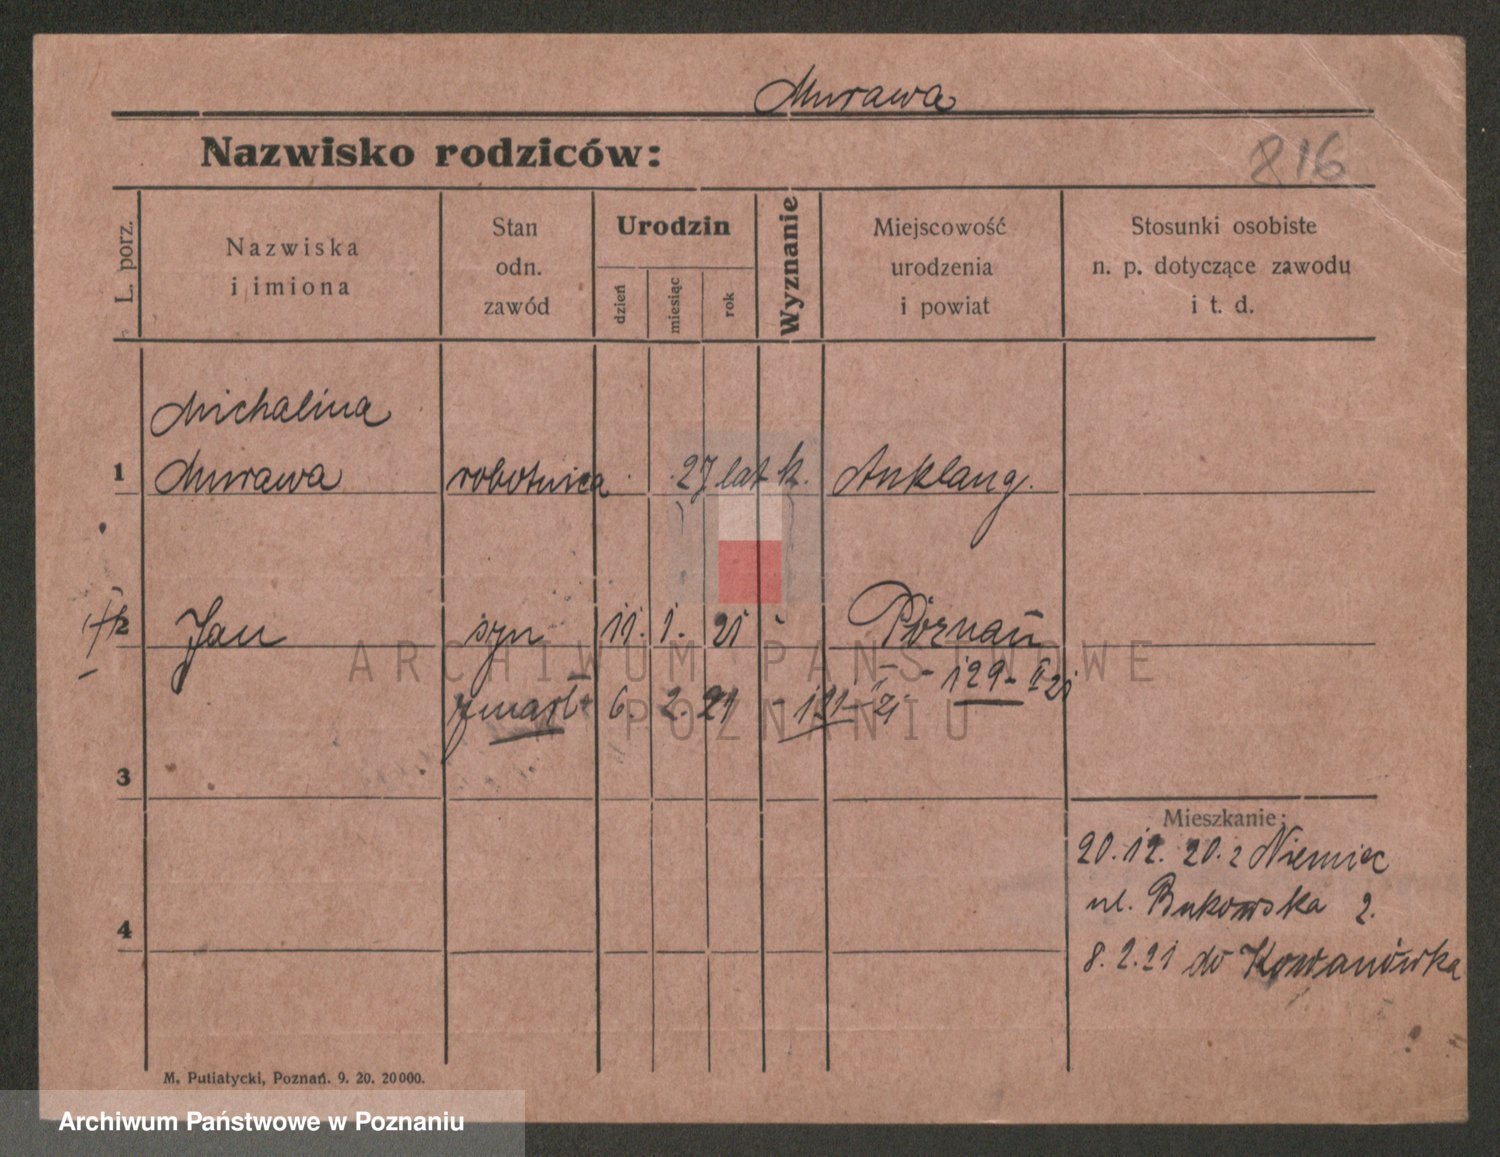 Murawa
Nazwisko rodziców:
816
L. porz.
Nazwiska
i imiona
Stan
odn.
zawód
Urodzin
dzień
miesiąc
rok
Wyznanie
Miejscowość
urodzenia
i powiat
Stosunki osobiste
n. p. dotyczące zawodu
i t. d.
Michalina
1 Murawa robotnica 27 lat k. Anklang.
2 Jan syn 11. 1. 21 Poznań
129 - II 21
zmarł 6. 2. 21 - 121 - 21
3
4
Mieszkanie:
20.12.20. z Niemiec
ul. Bukowska 2.
8.2.21 do Kowanówka
M. Putiatycki, Poznań. 9. 20. 20000.
ARCHIWUM PAŃSTWOWE
W POZNANIU
Archiwum Państwowe w Poznaniu